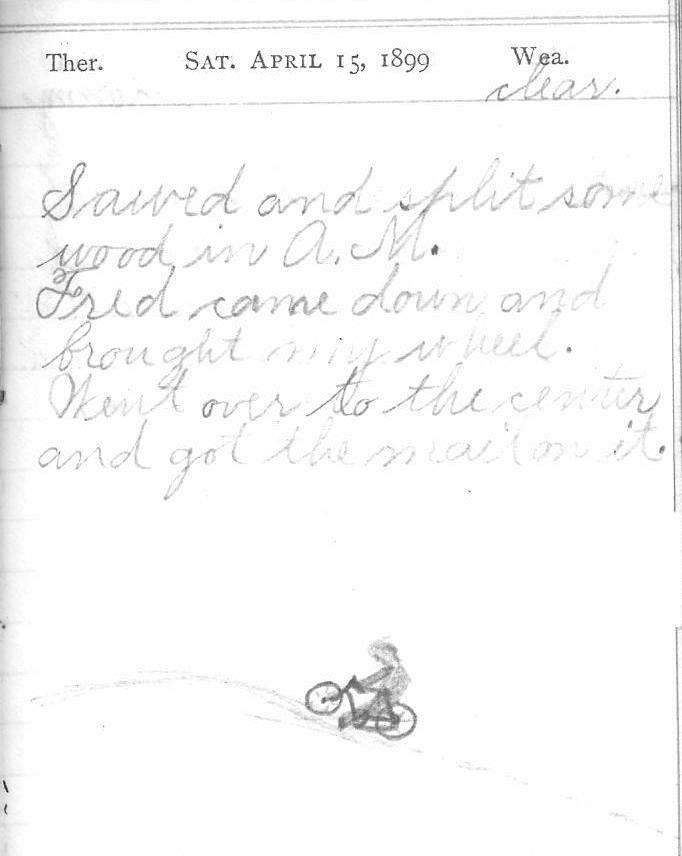 Ther. SAT. APRIL 15, 1899 Wea.
clear.
Sawed and split some
wood in A.M.
Fred came down and
brought my wheel.
Went over to the center
and got the mail on it.